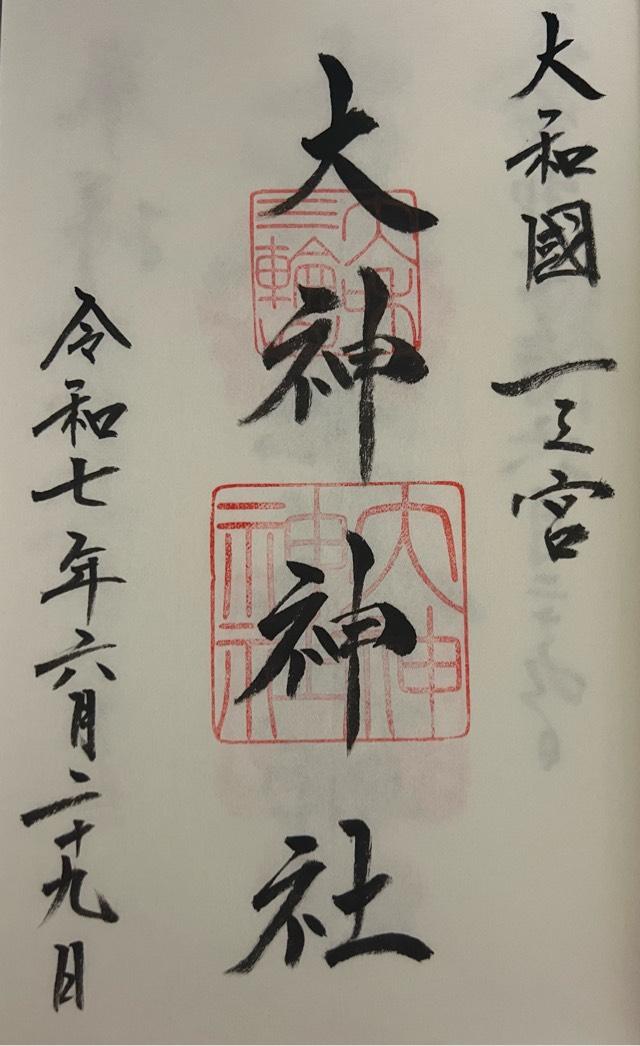 大和國一之宮
大神神社
大神
神社
令和七年六月二十九日